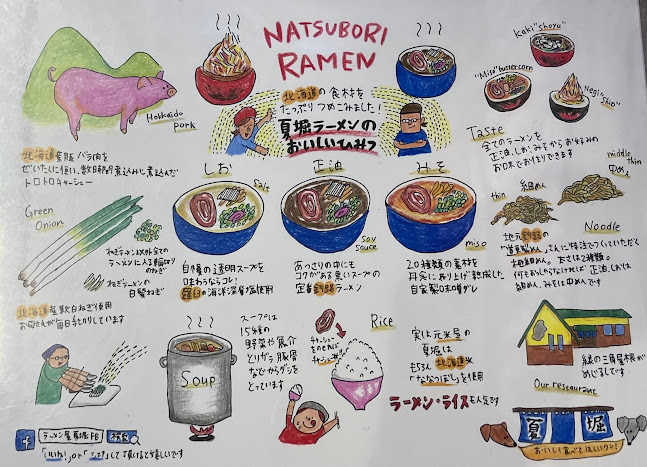 NATSUBORI
RAMEN
北海道の食材を
たっぷりつめこみました！
夏堀ラーメンの
おいしいひみつ
Kaki"shoyu"
"Miso"buttercorn
Negi"Shio"
Hokkaido
pork
北海道産豚バラ肉を
ぜいたくに使い、数時間煮込みに煮込んだ
トロトロチャーシュー
Taste
全てのラーメンを
正油、しお、みそからお好みの
お味でお作りできます
しお
Salt
自慢の透明スープを
味わうならコレ！
羅臼の海洋深層塩使用
正油
Soy
sauce
あっさりの中にも
コクがある黒いスープの
定番釧路ラーメン
みそ
miso
20種類の素材を
丹念に練り上げ熟成した
自家製の味噌ダレ
thin
細めん
middle
thin
中めん
Noodle
地元釧路の
相細めん。太さは2種類。
細めん、みそは中めんです
Green
Onion
ねぎラーメン以外全ての
ラーメンに入る輪切り
のねぎ
ねぎラーメンの
白髪ねぎ
北海道産軟白ねぎ使用
お母さんが毎日手切りしています
Soup
スープには
15種の
野菜や魚介
とりがら、豚骨
などからダシを
とっています
Rice
チャーシュー
実は元米屋の
夏堀は
もちろん北海道米
「ななつぼし」を使用
ラーメン・ライスも人気です
緑の三角屋根が
めじるしです
Our restaurant
夏堀
おいしく食べてほしいワン！
f ラーメン屋夏堀FB 検索
「いいね！」or「シェア」して頂けると嬉しいです